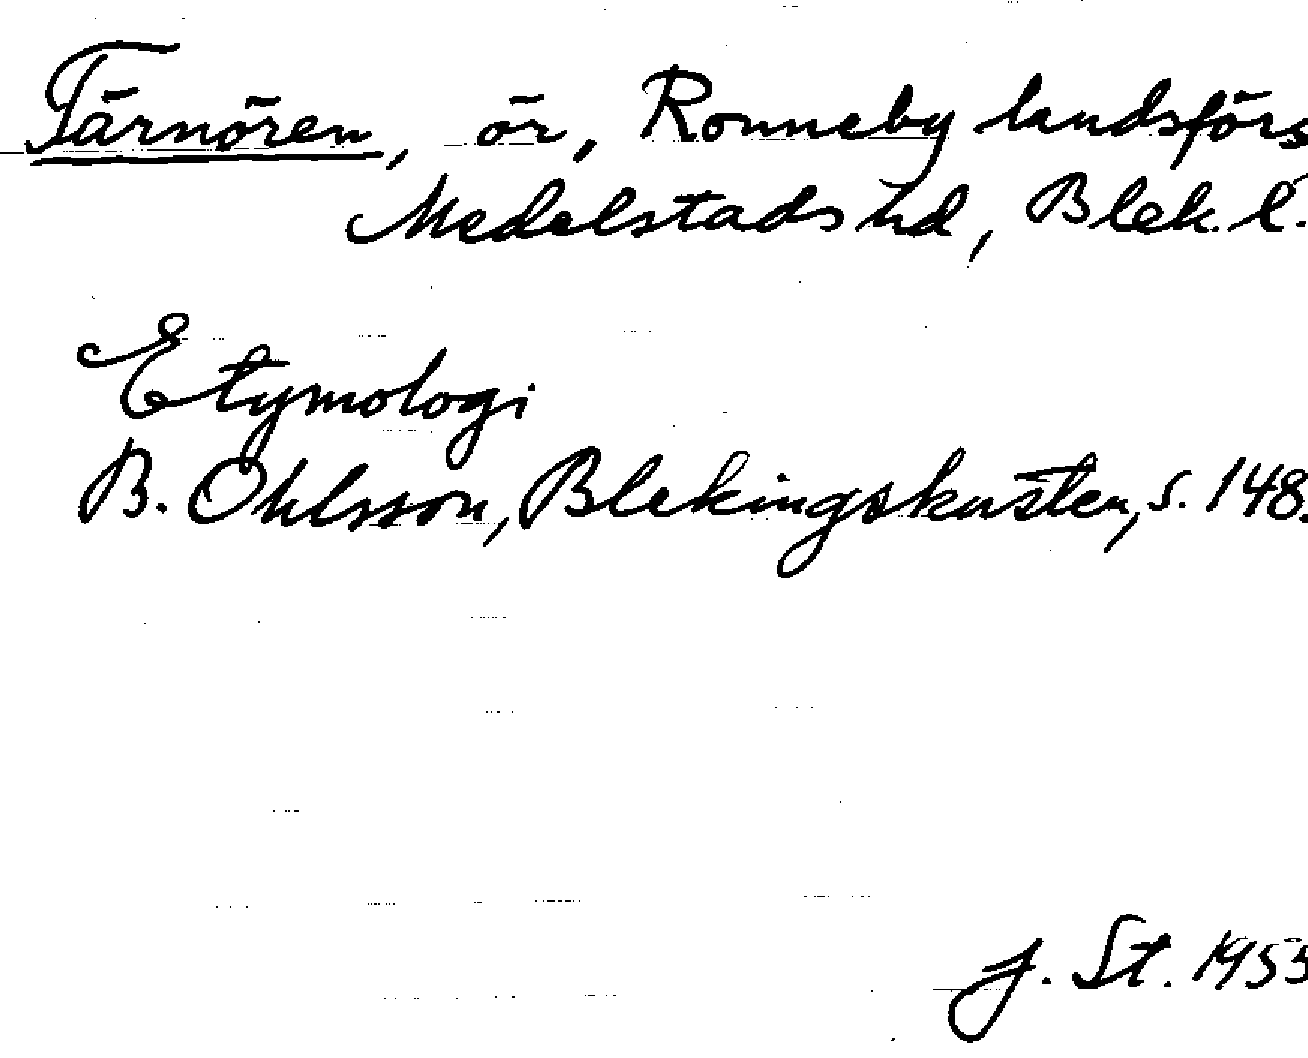 Tärnören, ör, Ronneby landsförs
Medelstads hd, Blek. l.
Etymologi
B. Ohlsson, Blekingskusten, s. 148.
J. St. 1953